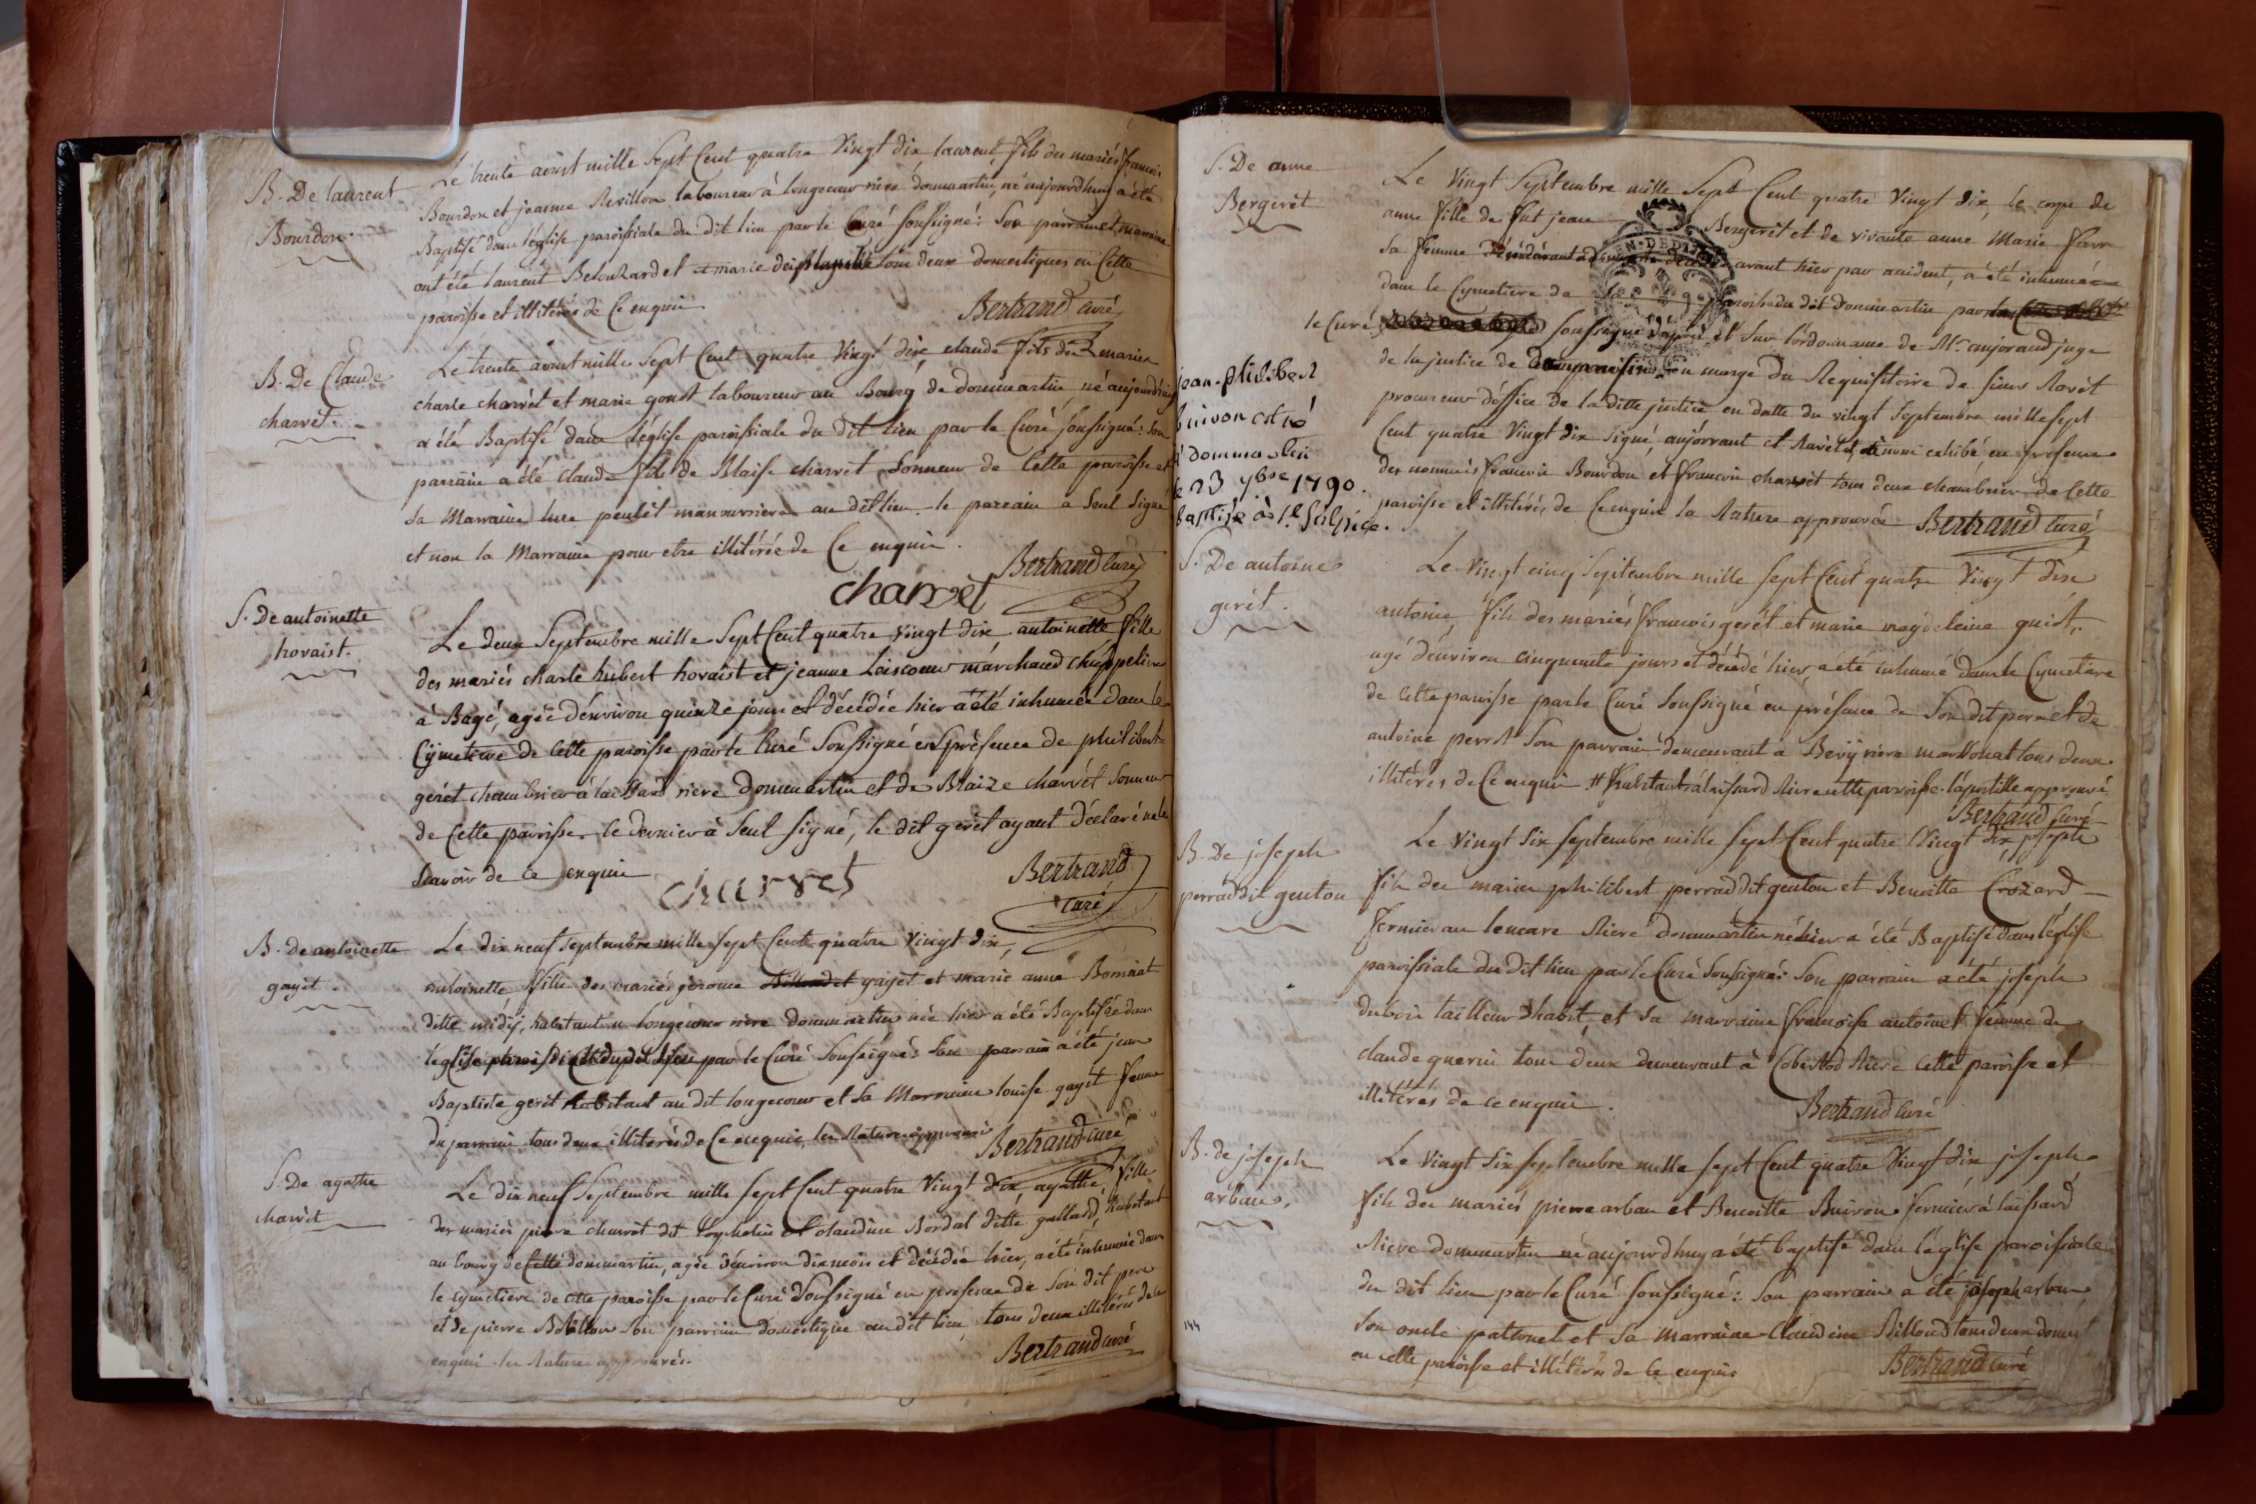 B. De laurent
Bourdon.
Le trente aoust mille Sept Cent quatre Vingt dix laurent, fils des mariés francois
Bourdon et jeanne Revillon laboureur à longecour riere dommartin, né aujourdhuy a été
Baptisé dans l'église paroissiale du dit lieu par le Curé soussigné: Son parrain et marraine
ont été laurent Belouzard et marie tous deux domestiques en Cette
paroisse et illitérés de Ce enquis
Bertrand Curé
B. De Claude
charvèt.
Le trente aoust mille Sept Cent quatre Vingt dix claude fils des mariés
charle charvèt et marie gonot laboureur au Bourg de dommartin, né aujourdhuy
a été Baptisé dans l'église paroissiale du dit lieu par le Curé soussigné: Son
parrain a été claude fils de Blaise charvèt Sonneur de Cette paroisse et
Sa Marraine manouvriere au dit lieu. le parrain a Seul Signé
et non la Marraine pour etre illitérée de Ce enquise.
Bertrand Curé
charvèt
S. De antoinette
hovaist.
Le deux Septembre mille Sept Cent quatre Vingt dix, antoinette fille
des mariés charle hubert hovaist et jeanne Loiscour marchand chappelier
à Bagé, agée dénviron quinze jours et décédée hier a été inhumée dans le
Cymetiere de Cette paroisse par le Curé Soussigné en présence de philibert
gerèt chambrier à laissard riere dommartin et de Blaize charvèt Sonneur
de Cette paroisse. le dernier à Seul signé, le dit gerèt ayant déclaré ne le
Scavoir de ce enquis
charvet
Bertrand
Curé
B. de antoinette
gayèt.
Le dix neuf Septembre mille Sept Cent quatre Vingt dix,
antoinette fille des mariés jerome gayet et marie anne Bornnat
ditte midÿ, habitant a longecour riere dommartin née hier a été Baptisée dans
l'église paroissialle du dit lieu par le Curé Soussigné: Son parrain a été jean
Baptiste gerèt habitant au dit longecour et Sa Marraine louise gayèt femme
du parrain tous deux illiterés de Ce enquis, les Ratures approuvées
Bertrand Curé
S. De agathe
charvèt
Le dix neuf Septembre mille Sept Cent quatre Vingt dix, agathe, fille
des mariés piere charvèt dit et claudine Bordat ditte gallard, habitant
au bourg de Cette dommartin, agée dénviron dix mois et décédée hier, a été inhumée dans
le cymetiere de Cette paroisse par le Curé Soussigné en présence de Son dit pere
et de pierre Billon Son parrain domestique au dit lieu tous deux illiterés de Ce
enquis les Ratures approuvées.
Bertrand Curé
S. De anne
Bergerèt
Le Vingt Septembre mille Sept Cent quatre Vingt dix, le corps de
anne fille de fut jean Bergerèt et de vivante anne Marie favr
Sa femme avant hier par accident, a été inhumée
dans le Cymetiere de paroisse du dit Dommartin par
le Curé soussigné d'après et Sur l'ordonnance de Mr. aujorand juge
de la justice de en marge du Requisitoire de Sieur Ravèt
procureur d'office de la ditte justice en datte du vingt Septembre mille sept
Cent quatre Vingt dix Signé aujorrant et Ravèt à nous exhibé en présence
des nommés francois Bourdon et francois charvèt tous deux chambrier de Cette
paroisse et illitérés de Ce enquis la Rature approuvée
Bertrand Curé
jean-philibert
buivon est né
à dommartin
le 23 7bre 1790.
baptisé à St Sulpice.
S. De antoine
gerèt.
Le Vingt cinq Septembre mille Sept Cent quatre Vingt dix
antoine, fils des mariés francois gerèt et marie magdeleine guiot,
agé dénviron cinquante jours et décédé hier, a été inhumé dans le Cymetiere
de Cette paroisse par le Curé Soussigné en présence de Son dit pere et de
antoine perrot Son parrain demeurant a Bevÿ riere marsonat tous deux
illitérés de Ce enquis # habitant à laissard Riere cette paroisse. l'apostille approuvé
Bertrand Curé
B. De joseph
perrad dit genton
Le Vingt Six Septembre mille Sept Cent quatre Vingt dix joseph
fils des mariés philibert perrad dit genton et Benoitte Crozard
fermier au loncare Riere dommartin né hier a été Baptisé dans l'église
paroissiale du dit lieu par le Curé Soussigné: Son parrain a été joseph
dubois tailleur d'habit, et Sa marraine francoise antoinet femme de
claude guerin tous deux demeurant à Cobertod Riere cette paroisse et
illitérés de ce enquis.
Bertrand Curé
B. de joseph
arban.
Le Vingt Six Septembre mille Sept Cent quatre Vingt dix joseph
fils des mariés pierre arban et Benoitte Buivon fermier à laissard
Riere dommartin né aujourd'huy a été baptisé dans l'église paroissiale
du dit lieu par le Curé soussigné: Son parrain a été joseph arban
Son oncle paternel et Sa marraine Claudine Billoud tous deux domest
en cette paroisse et illitérés de ce enquis
Bertrand Curé
144